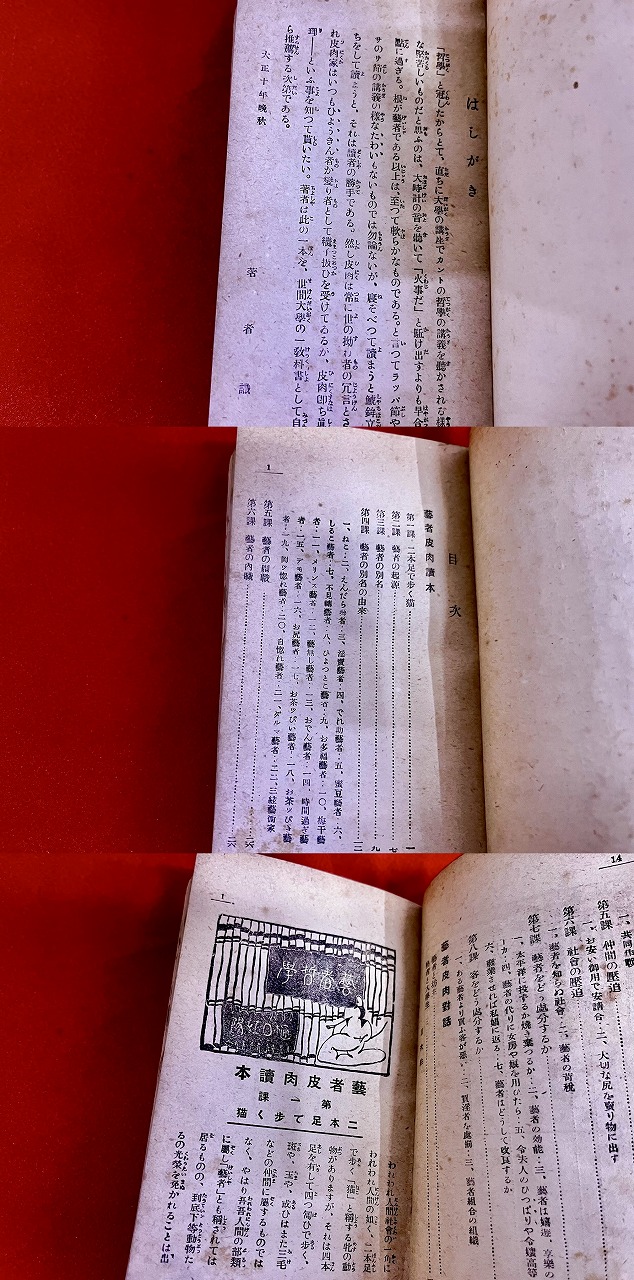 はしがき
「哲學」と冠したからとて、直ちに大學の講座でカントの哲學の講義を聽かされる樣
な堅苦しいものだと思ふのは、大時計の音を聽いて「火事だ」と駈け出すよりも早合
點に過ぎる。根が藝者である以上は、至つて軟らかなものである。と言つてラッパ節や
サのサ節の講義の樣なたわいもないものでは勿論ないが、寢そべつて讀まうと鯱鉾立
ちをして讀まうと、それは讀者の勝手である。然し皮肉は常に世の拗ね者の冗言とさ
れ皮肉家はいつもひようきん者か變り者として繼子扱ひを受けてゐるが、皮肉卽ち眞
理――といふ事を知つて貰いたい。著者は此の一本を、世間大學の一敎科書として自
ら推薦する次第である。
大正十年晩秋
著者識
1
目次
藝者皮肉讀本
第一課 二本足で歩く猫
第二課 藝者の起源
第三課 藝者の別名
第四課 藝者の別名の由來
一、ねこ・二、えんだら藝者・三、淫賣藝者・四、でれ助藝者・五、蜜豆藝者・六、
しるこ藝者・七、不見轉藝者・八、ひよつとこ藝者・九、お多福藝者・一〇、梅干藝
者・一一、メリンス藝者・一二、藝無し藝者・一三、おでん藝者・一四、時間過ぎ藝
者・一五、デモ藝者・一六、お尻藝者・一七、お茶ッぴい藝者・一八、お茶ッぴき藝
者・一九、岡ッ惚れ藝者・二〇、自惚れ藝者・二一、ダルマ藝者・二二、三絃藝術家
第五課 藝者の組織
第六課 藝者の內職
14
一、共同作戰
第五課 仲間の壓迫
一、お安い御用で安請合・二、大切な尻を賣り物に出す
第六課 社會の壓迫
一、藝者を知らぬ社會・二、藝者の背稅
第七課 藝者をどう處分するか
一、太平洋に投ずるか燒き棄つるか・二、藝者の効能・三、藝者は嬉遊、享樂の
か・四、藝者の代りに女房や娘を用ひたら・五、令夫人のひつぱりや令孃高等
六、廢業させれば私娼に返る・七、藝者はどうして改良するか
第八課 客をどう處分するか
一、ある藝者より買ふ客が惡い・二、買淫者を處罰・三、藝者組合の組織
藝者皮肉對話
1
藝者哲學
藝者皮肉讀本
第一課
二本足で歩く猫
われわれ人間社會の一角に
われわれ人間の如く、二本足
で歩く「猫」と稱する牝の動
物がありますが、それは四本
足を有して四つ匐ひで歩く、
斑や、玉や、或ひはまた三毛
などの仲間に屬するものでは
なく、やはり吾吾人間の部類
に屬し「藝者」とも稱されては
居るものの、到底下等動物た
るの光榮を免かれることは出